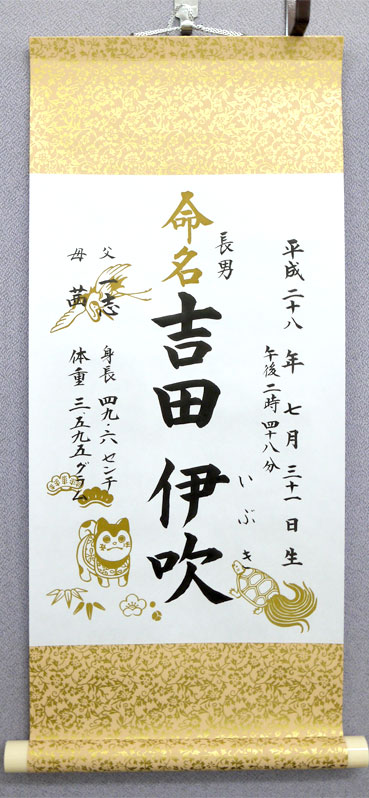 平成二十八年 七月 三十一日生
午後二時四十八分
長男
命名 吉田 伊吹
いぶき
父 一志
母 茜
身長 四九・六センチ
体重 三五九五グラム